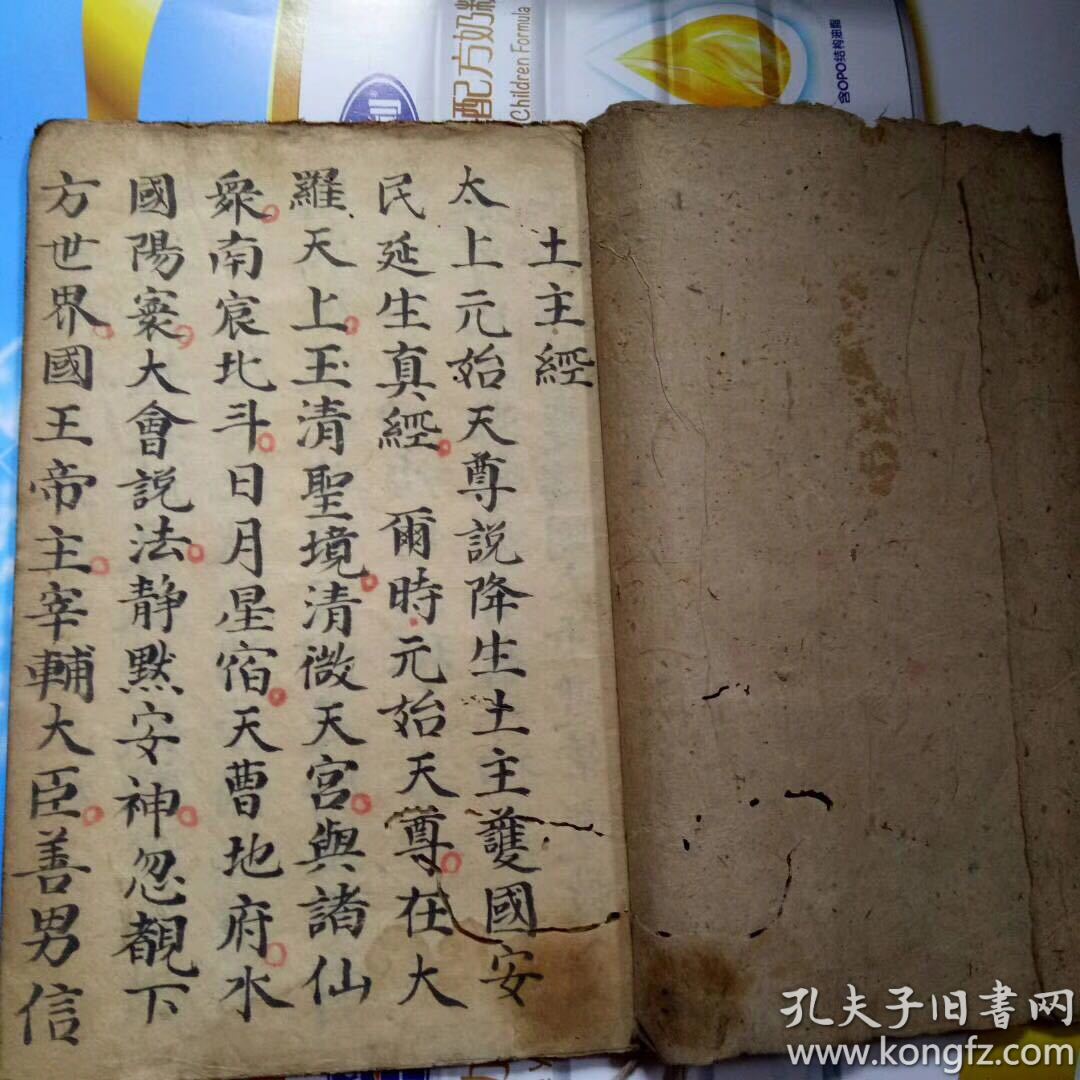 配方奶粉
Children Formula
含OPO结构油脂
土主經
太上元始天尊説降生土主護國安
民延生真經 爾時元始天尊在大
羅天上玉清聖境清微天宮與諸仙
衆南宸北斗日月星宿天曹地府水
國陽寮大會説法靜默安神忽覩下
方世界國王帝主宰輔大臣善男信
孔夫子旧书网
www.kongfz.com